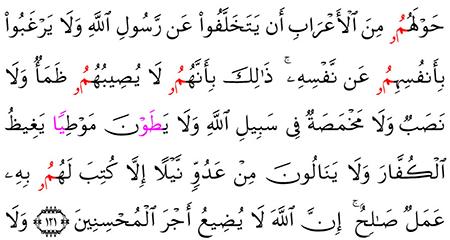 حَوْلَهُمُۥ مِنَ ٱلْأَعْرَابِ أَن يَتَخَلَّفُوا۟ عَن رَّسُولِ ٱللَّهِ وَلَا يَرْغَبُوا۟
بِأَنفُسِهِمُۥ عَن نَّفْسِهِۦۚ ذَٰلِكَ بِأَنَّهُمُۥ لَا يُصِيبُهُمُۥ ظَمَأٌ وَلَا
نَصَبٌ وَلَا مَخْمَصَةٌ فِى سَبِيلِ ٱللَّهِ وَلَا يَطَوْنَ مَوْطِيًا يَغِيظُ
ٱلْكُفَّارَ وَلَا يَنَالُونَ مِنْ عَدُوٍّ نَّيْلًا إِلَّا كُتِبَ لَهُمُۥ بِهِۦ
عَمَلٌ صَٰلِحٌۚ إِنَّ ٱللَّهَ لَا يُضِيعُ أَجْرَ ٱلْمُحْسِنِينَ ﴿١٢١﴾ وَلَا